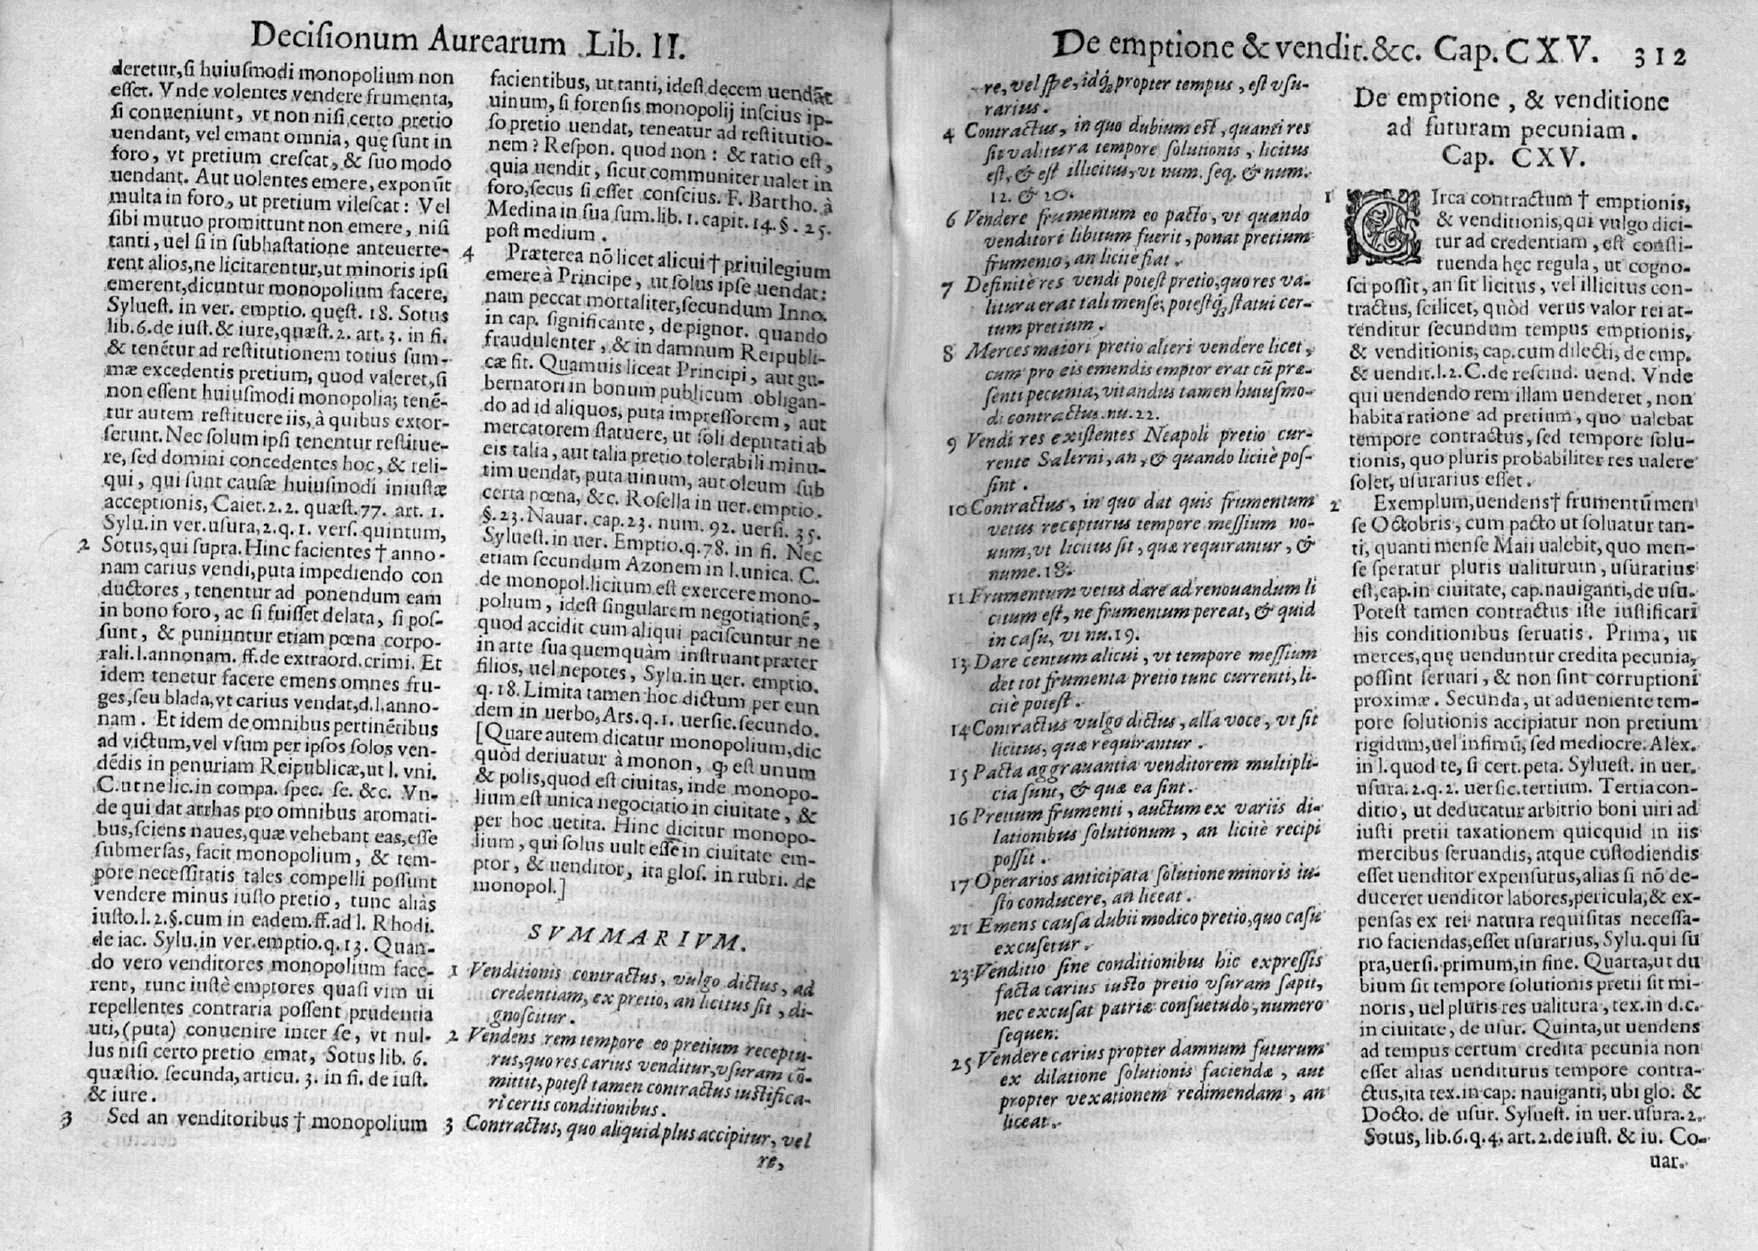 Decisionum Aurearum Lib. II.
deretur, si huiusmodi monopolium non
esset. Vnde volentes vendere frumenta,
si conueniunt, vt non nisi certo pretio
uendant, vel emant omnia, quę sunt in
foro, vt pretium crescat, & suo modo
uendant. Aut uolentes emere, exponūt
multa in foro, ut pretium vilescat: Vel
sibi mutuo promittunt non emere, nisi
tanti, uel si in subhastatione anteuerte-
rent alios, ne licitarentur, ut minoris ipsi
emerent, dicuntur monopolium facere,
Syluest. in ver. emptio. quęst. 18. Sotus
lib. 6. de iust. & iure, quæst. 2. art. 3. in fi.
& tenētur ad restitutionem totius sum-
mæ excedentis pretium, quod valeret, si
non essent huiusmodi monopolia; tenē-
tur autem restituere iis, à quibus extor-
serunt. Nec solum ipsi tenentur restitue-
re, sed domini concedentes hoc, & reli-
qui, qui sunt causæ huiusmodi iniustæ
acceptionis, Caiet. 2. 2. quæst. 77. art. 1.
Sylu. in ver. usura, 2. q. 1. vers. quintum,
2 Sotus, qui supra. Hinc facientes † anno-
nam carius vendi, puta impediendo con
ductores, tenentur ad ponendum eam
in bono foro, ac si fuisset delata, si pos-
sunt, & puniuntur etiam pœna corpo-
rali. l. annonam. ff. de extraord. crimi. Et
idem tenetur facere emens omnes fru-
ges, seu blada, vt carius vendat, d. l. anno-
nam. Et idem de omnibus pertinētibus
ad victum, vel vsum per ipsos solos ven-
dēdis in penuriam Reipublicæ, ut l. vni.
C. ut ne lic. in compa. spec. se. &c. Vn-
de qui dat arrhas pro omnibus aromati-
bus, sciens naues, quæ vehebant eas, esse
submersas, facit monopolium, & tem-
pore necessitatis tales compelli possunt
vendere minus iusto pretio, tunc alias
iusto. l. 2. §. cum in eadem. ff. ad l. Rhodi.
de iac. Sylu. in ver. emptio. q. 13. Quan-
do vero venditores monopolium face-
rent, tunc iustè emptores quasi vim ui
repellentes contraria possent prudentia
uti, (puta) conuenire inter se, vt nul-
lus nisi certo pretio emat, Sotus lib. 6.
quæstio. secunda, articu. 3. in fi. de iust.
& iure.
3 Sed an venditoribus † monopolium
facientibus, ut tanti, idest decem uendāt
uinum, si forensis monopolij inscius ip-
so pretio uendat, teneatur ad restitutio-
nem? Respon. quod non: & ratio est,
quia uendit, sicut communiter ualet in
foro, secus si esset conscius. F. Bartho. à
Medina in sua sum. lib. 1. capit. 14. §. 25.
post medium.
4 Præterea nō licet alicui † priuilegium
emere à Principe, ut solus ipse uendat:
nam peccat mortaliter, secundum Inno.
in cap. significante, de pignor. quando
fraudulenter, & in damnum Reipubli-
cæ fit. Quamuis liceat Principi, aut gu-
bernatori in bonum publicum obligan-
do ad id aliquos, puta impressorem, aut
mercatorem statuere, ut soli deputati ab
eis talia, aut talia pretio tolerabili minu-
tim uendat, puta uinum, aut oleum sub
certa pœna, &c. Rosella in uer. emptio.
§. 23. Nauar. cap. 23. num. 92. uersi. 35.
Syluest. in uer. Emptio. q. 78. in fi. Nec
etiam secundum Azonem in l. unica. C.
de monopol. licitum est exercere mono-
polium, idest singularem negotiationē,
quod accidit cum aliqui paciscuntur ne
in arte sua quemquàm instruant præter
filios, uel nepotes, Sylu. in uer. emptio.
q. 18. Limita tamen hoc dictum per eun
dem in uerbo, Ars. q. 1. uersic. secundo.
[Quare autem dicatur monopolium, dic
quòd deriuatur à monon, ꝙ est unum
& polis, quod est ciuitas, inde monopo-
lium est unica negociatio in ciuitate, &
per hoc uetita. Hinc dicitur monopo-
lium, qui solus uult esse in ciuitate em-
ptor, & uenditor, ita glos. in rubri. de
monopol.]
SVMMARIVM.
1 Venditionis contractus, vulgo dictus, ad
credentiam, ex pretio, an licitus sit, di-
gnoscitur.
2 Vendens rem tempore eo pretium receptu-
rus, quo res carius venditur, vsuram cō-
mittit, potest tamen contractus iustifica-
ri certis conditionibus.
3 Contractus, quo aliquid plus accipitur, vel
re,
De emptione & vendit. &c. Cap. CXV. 312
re, vel spe, idq́; propter tempus, est vsu-
rarius.
4 Contractus, in quo dubium est, quanti res
sit valitura tempore solutionis, licitus
est, & est illicitus, vt num. seq. & num.
12. & 20.
6 Vendere frumentum eo pacto, vt quando
venditori libitum fuerit, ponat pretium
frumento, an licite fiat.
7 Definitè res vendi potest pretio, quo res va-
litura erat tali mense, potestq́; statui cer-
tum pretium.
8 Merces maiori pretio alteri vendere licet,
cum pro eis emendis emptor erat cū præ-
senti pecunia, vitandus tamen huiusmo-
di contractus. nu. 22.
9 Vendi res existentes Neapoli pretio cur-
rente Salerni, an, & quando licitè pos-
sint.
10 Contractus, in quo dat quis frumentum
vetus recepturus tempore messium no-
uum, vt licitus sit, quæ requirantur, &
nume. 18.
11 Frumentum vetus dare ad renouandum li
citum est, ne frumentum pereat, & quid
in casu, vt nu. 19.
13 Dare centum alicui, vt tempore messium
det tot frumenta pretio tunc currenti, li-
citè potest.
14 Contractus vulgo dictus, alla voce, vt sit
licitus, quæ requirantur.
15 Pacta aggrauantia venditorem multipli-
cia sunt, & quæ ea sint.
16 Pretium frumenti, auctum ex variis di-
lationibus solutionum, an licitè recipi
possit.
17 Operarios anticipata solutione minoris iu-
sto conducere, an liceat.
21 Emens causa dubii modico pretio, quo casu
excusetur.
23 Venditio sine conditionibus hic expressis
facta carius iusto pretio vsuram sapit,
nec excusat patriæ consuetudo, numero
sequen.
25 Vendere carius propter damnum futurum
ex dilatione solutionis faciendæ, aut
propter vexationem redimendam, an
liceat.
De emptione, & venditione
ad futuram pecuniam.
Cap. CXV.
1 CIrca contractum † emptionis,
& venditionis, qui vulgo dici-
tur ad credentiam, est consti-
tuenda hęc regula, ut cogno-
sci possit, an sit licitus, vel illicitus con-
tractus, scilicet, quòd verus valor rei at-
tenditur secundum tempus emptionis,
& venditionis, cap. cum dilecti, de emp.
& uendit. l. 2. C. de rescind. uend. Vnde
qui uendendo rem illam uenderet, non
habita ratione ad pretium, quo ualebat
tempore contractus, sed tempore solu-
tionis, quo pluris probabiliter res ualere
solet, usurarius esset.
2 Exemplum, uendens † frumentū men
se Octobris, cum pacto ut soluatur tan-
ti, quanti mense Maii ualebit, quo men-
se speratur pluris ualiturum, usurarius
est, cap. in ciuitate, cap. nauiganti, de usu.
Potest tamen contractus iste iustificari
his conditionibus seruatis. Prima, ut
merces, quę uenduntur credita pecunia,
possint seruari, & non sint corruptioni
proximæ. Secunda, ut adueniente tem-
pore solutionis accipiatur non pretium
rigidum, uel infimū, sed mediocre. Alex.
in l. quod te, si cert. peta. Syluest. in uer.
usura. 2. q. 2. uersic. tertium. Tertia con-
ditio, ut deducatur arbitrio boni uiri ad
iusti pretii taxationem quicquid in iis
mercibus seruandis, atque custodiendis
esset uenditor expensurus, alias si nō de-
duceret uenditor labores, pericula, & ex-
pensas ex rei natura requisitas necessa-
rio faciendas, esset usurarius, Sylu. qui su
pra, uersi. primum, in fine. Quarta, ut du
bium sit tempore solutionis pretii sit mi-
noris, uel pluris res ualitura, tex. in d. c.
in ciuitate, de usur. Quinta, ut uendens
ad tempus certum credita pecunia non
esset alias uenditurus tempore contra-
ctus, ita tex. in cap. nauiganti, ubi glo. &
Docto. de usur. Syluest. in uer. usura. 2.
Sotus, lib. 6. q. 4. art. 2. de iust. & iu. Co-
uar.